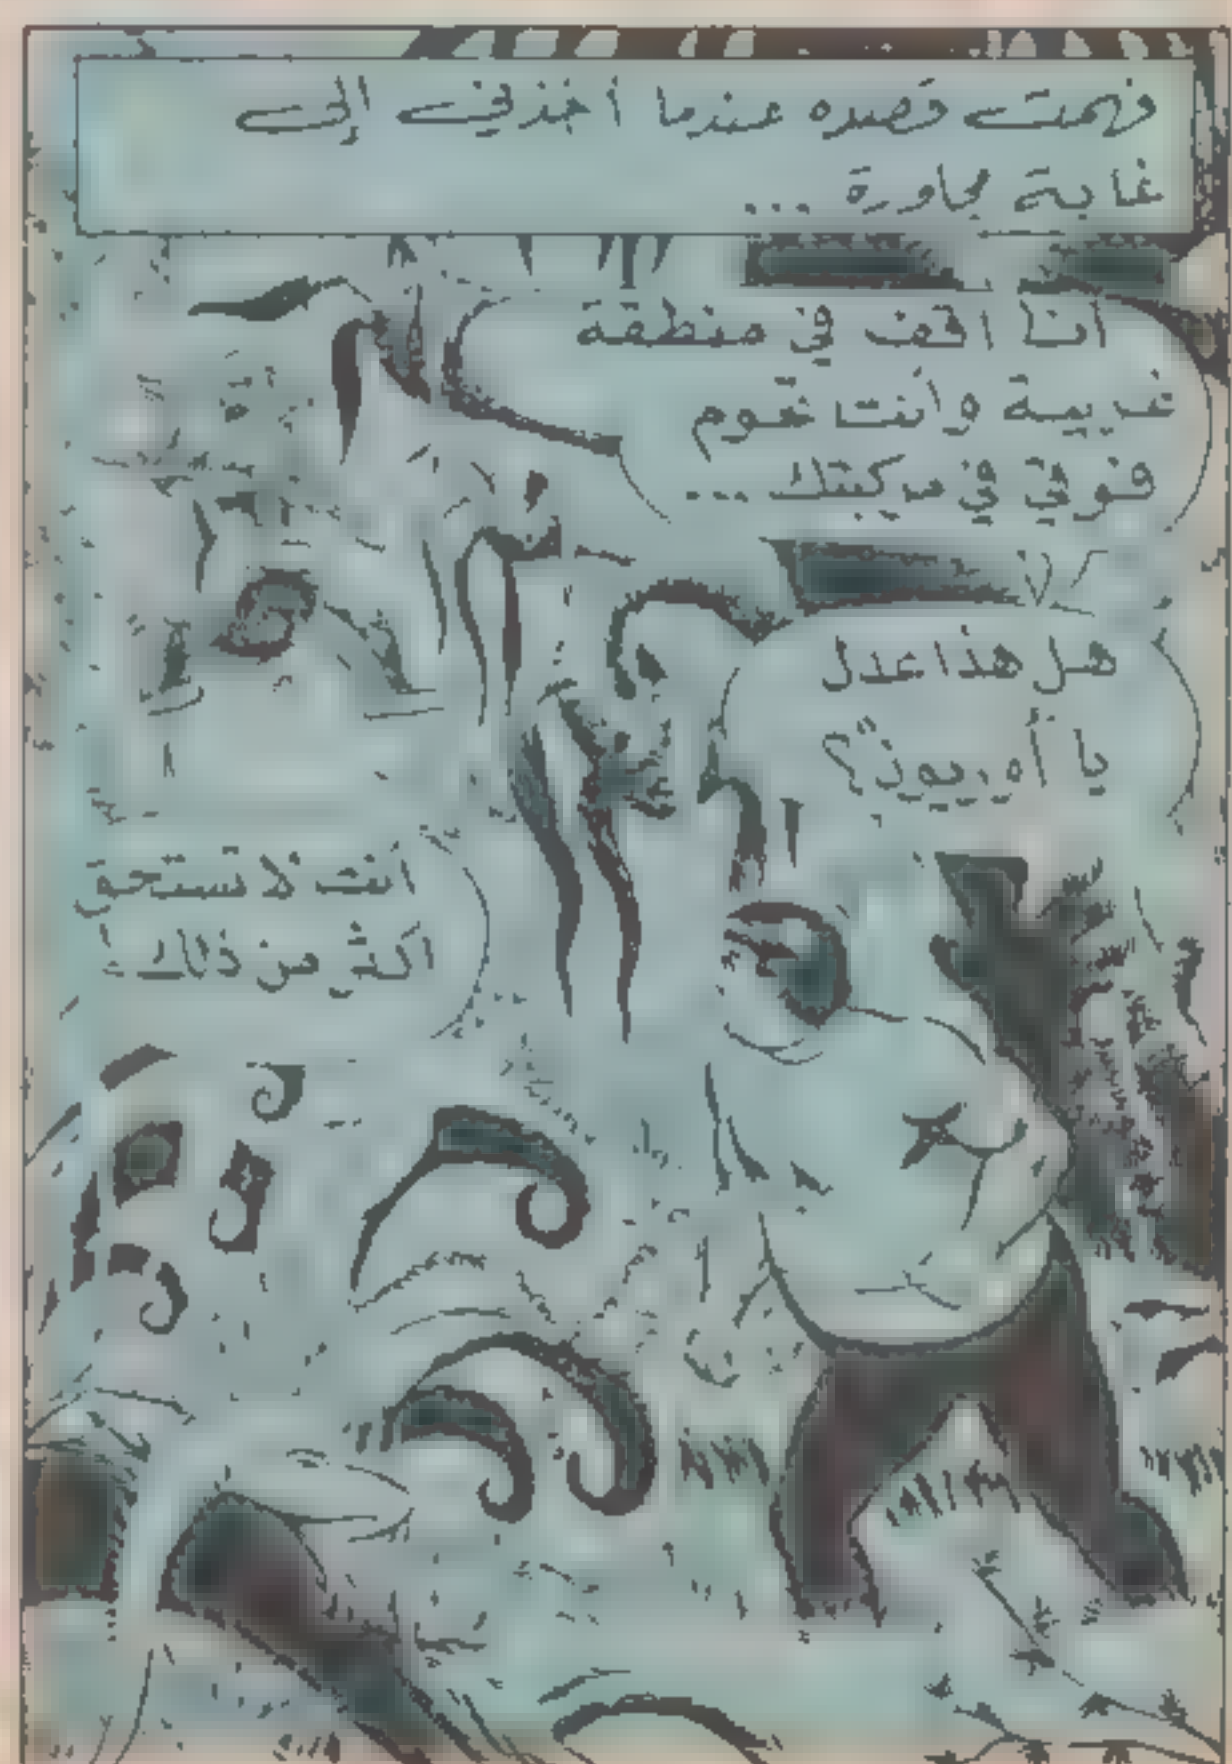 فهمت قصده عندما أخذني إلى
غابة مجاورة ...
أنا اقف في منطقة
غريبة وانت تحوم
فوقي في مركبتك ...
هل هذا عدل
يا أوريون؟
انت لا تستحق
اكثر من ذلك!